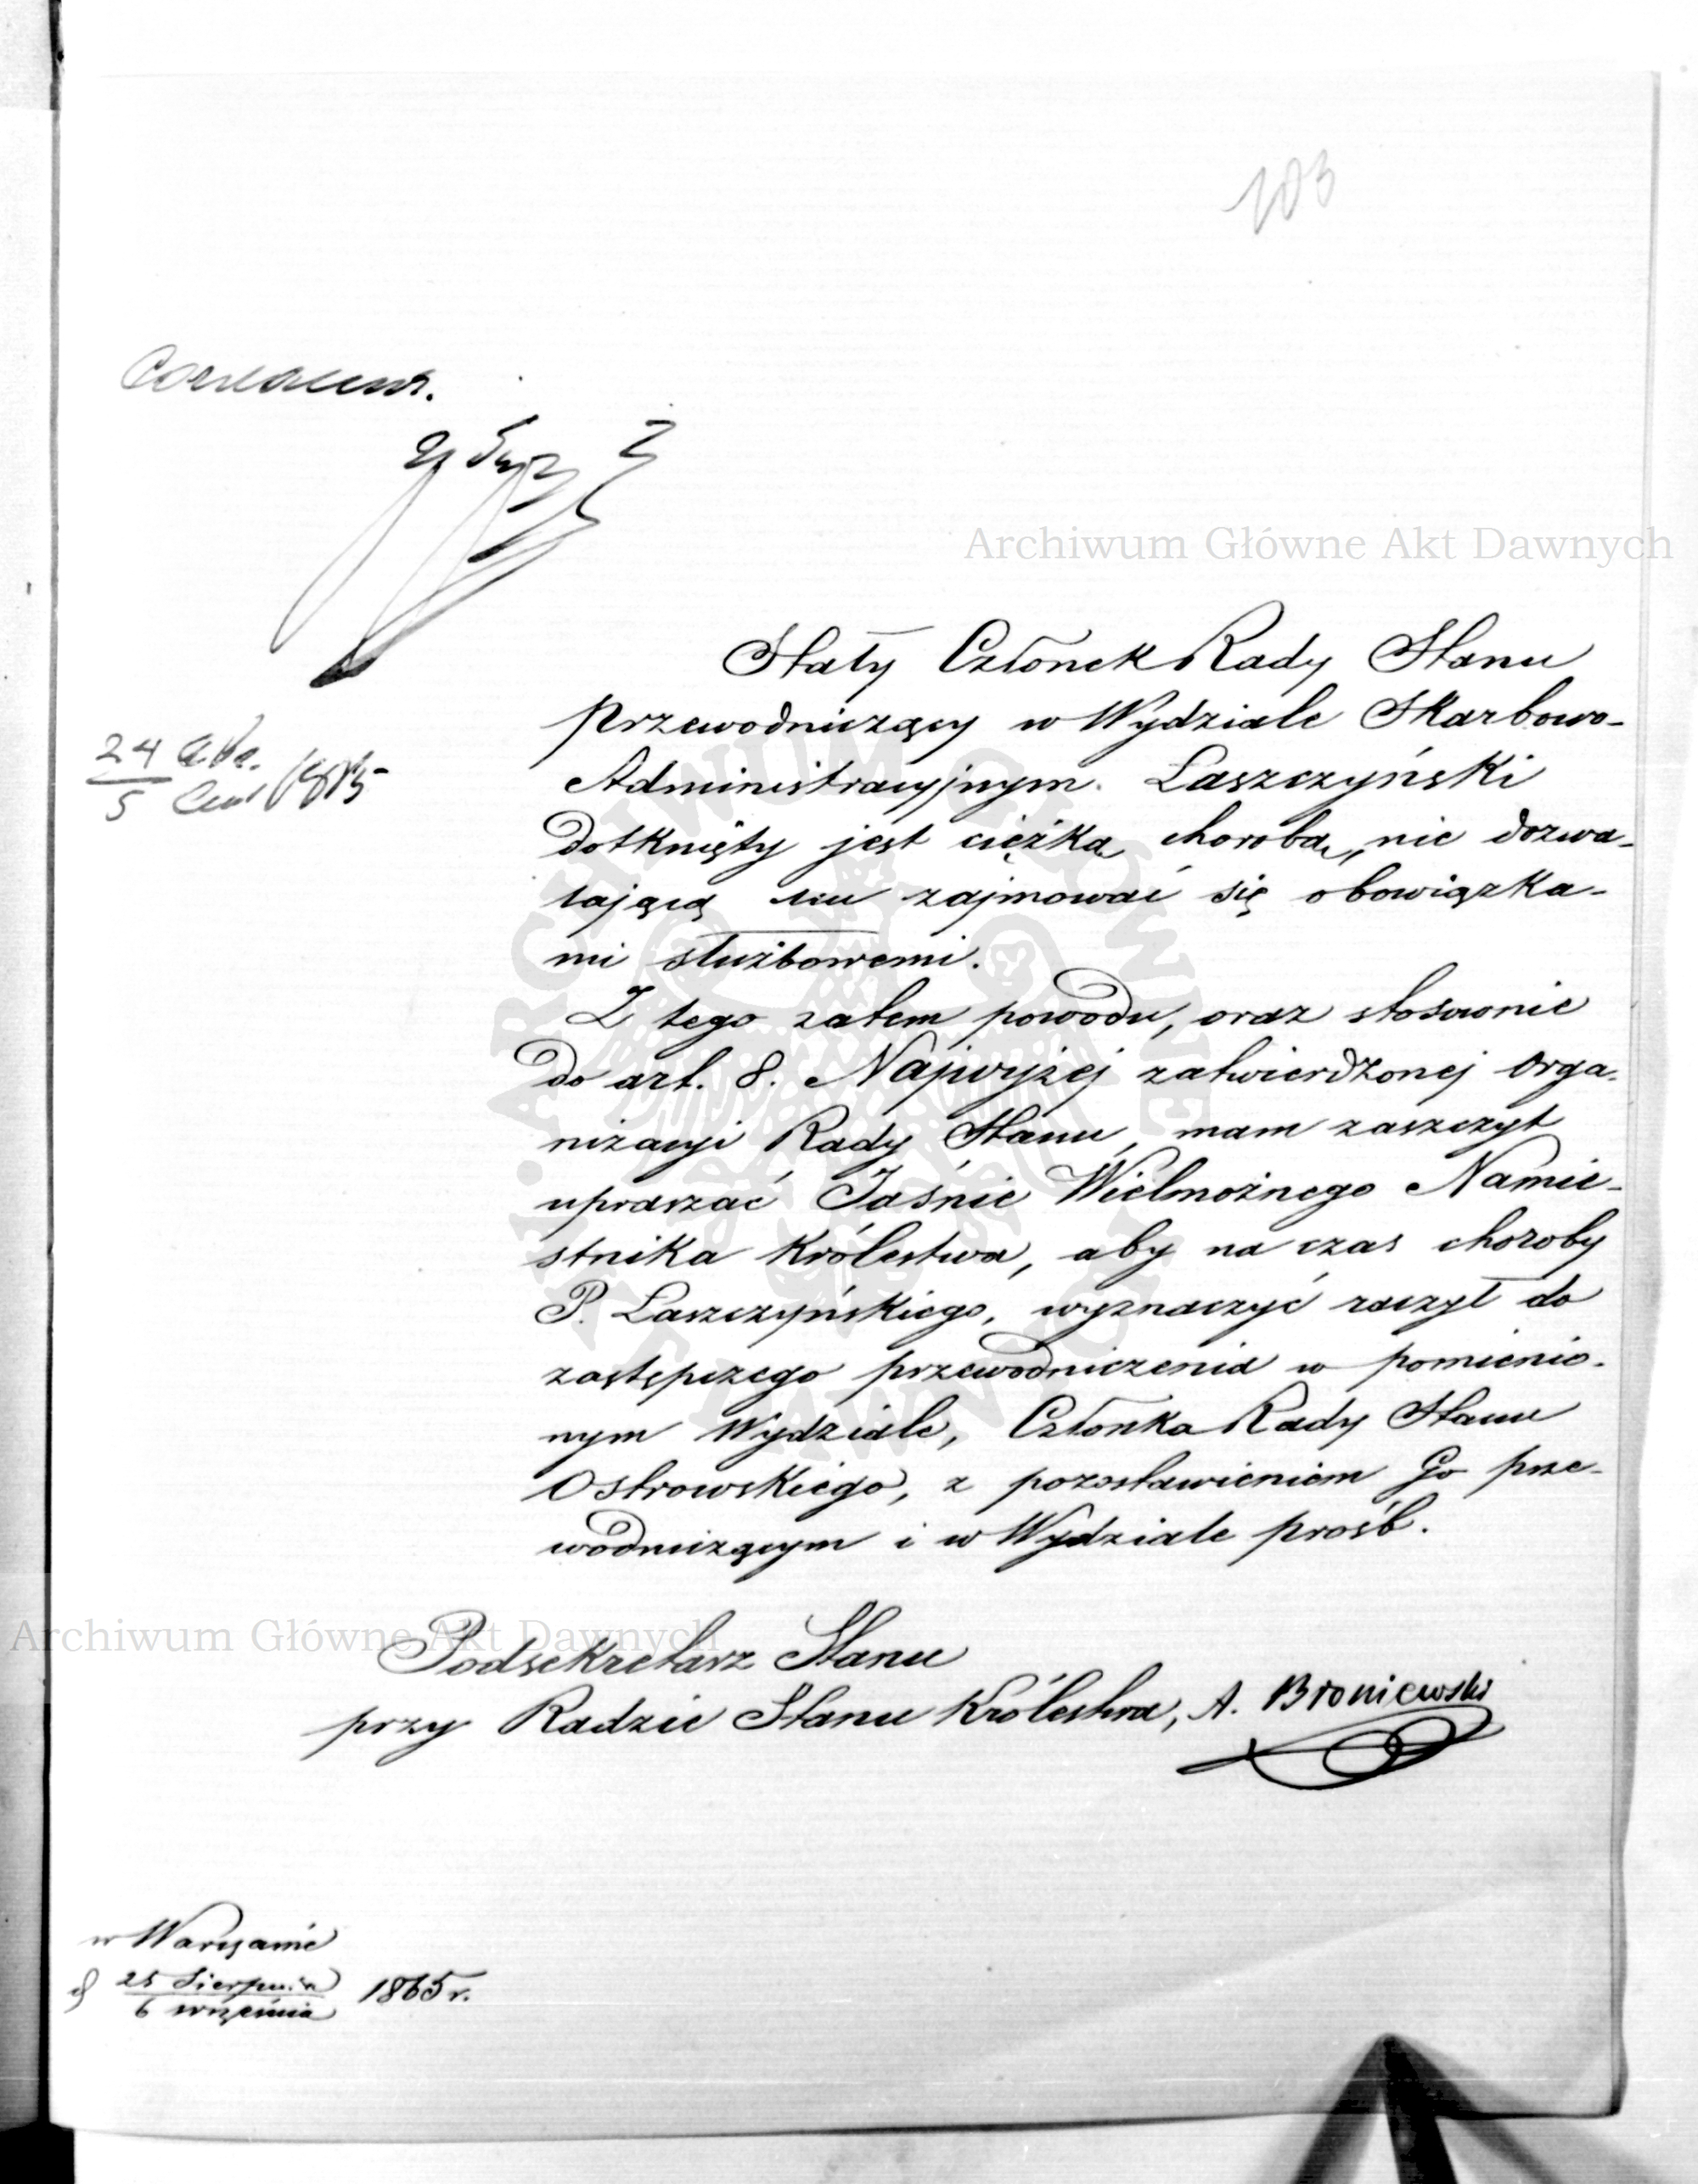 103
Согласенъ.
24 Авг.
5 Сент. 1865
Archiwum Główne Akt Dawnych
Stały Członek Rady Stanu
Przewodniczący w Wydziale Skarbowo-
Administracyjnym Łaszczyński
dotknięty jest ciężką chorobą, nie dozwa-
lającą mu zajmować się obowiązka-
mi służbowemi.
Z tego zatem powodu, oraz stosownie
do art. 8. Najwyżej zatwierdzonej orga-
nizacyi Rady Stanu, mam zaszczyt
upraszać Jaśnie Wielmożnego Namie-
stnika Królestwa, aby na czas choroby
P. Łaszczyńskiego, wyznaczyć raczył do
zastępczego przewodniczenia w pomienio-
nym Wydziale, Członka Rady Stanu
Ostrowskiego, z pozostawieniem Go prze-
wodniczącym i w Wydziale próśb.
Archiwum Główne Akt Dawnych
Podsekretarz Stanu
przy Radzie Stanu Królestwa, A. Broniewski
w Warszawie
d 25 Sierpnia
6 września 1865 r.
ARCHIWUM GŁÓWNE AKT DAWNYCH